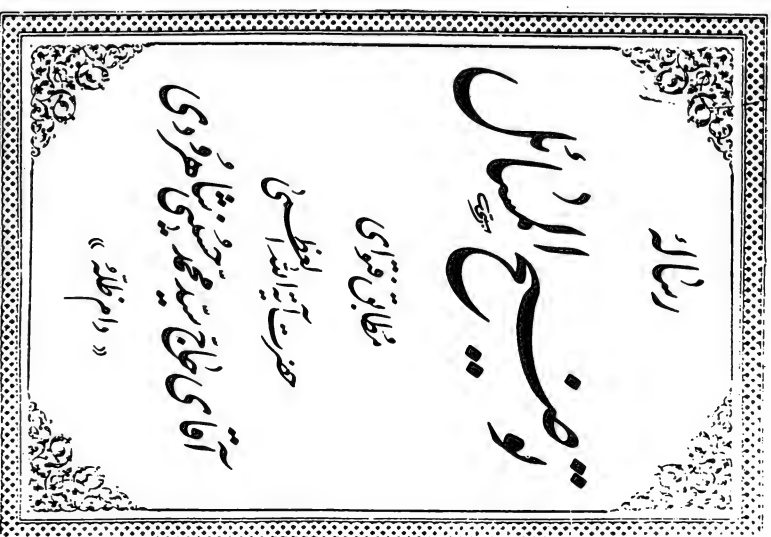 رساله
توضیح المسائل
مطابق فتوای
حضرت آیة الله العظمی
آقای حاج سید محمد حسینی شاهرودی
«دام ظله»